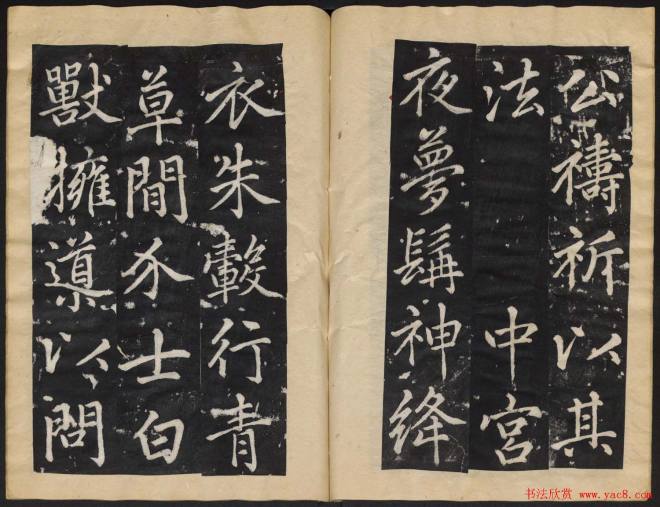 公禱祈以其
法 中宮
夜夢髯神絳
衣朱轂行青
草間介士白
獸擁道以問
书法欣赏 www.yac8.com